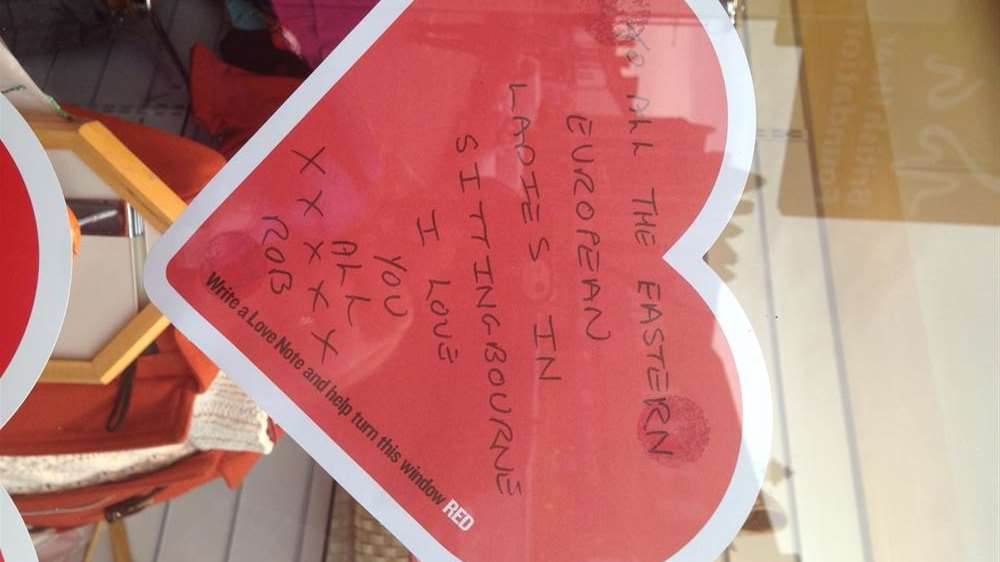 TO ALL THE EASTERN
EUROPEAN
LADIES IN
SITTINGBOURNE
I LOVE
YOU
ALL
X X X X
ROB
Write a Love Note and help turn this window RED